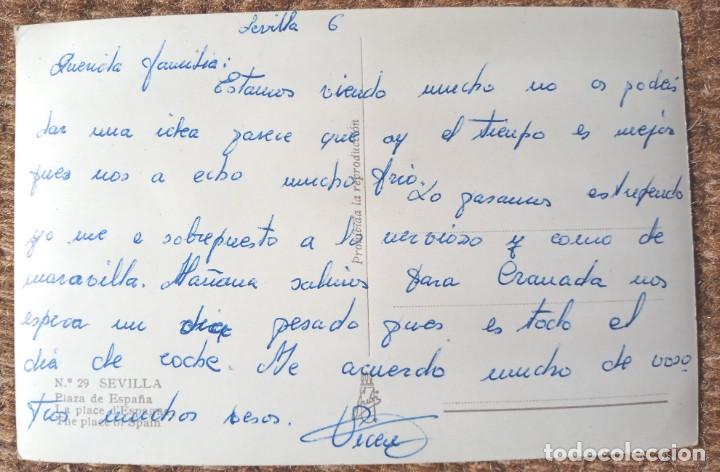 Sevilla 6
Querida familia:
Estamos viendo mucho no os podeis
dar una idea parece que oy el tiempo es mejor
pues nos a echo mucho frio.
Lo pasamos estupendo
yo me e sobrepuesto a lo nervioso y como de
maravilla. Mañana salimos para Granada nos
espera un dia pesado pues es todo el
dia de coche. Me acuerdo mucho de voso
tros muchos besos.
Prohibida la reproducción
N.º 29 SEVILLA
Plaza de España
La place d'Espagne
The place of Spain
todocoleccion.net